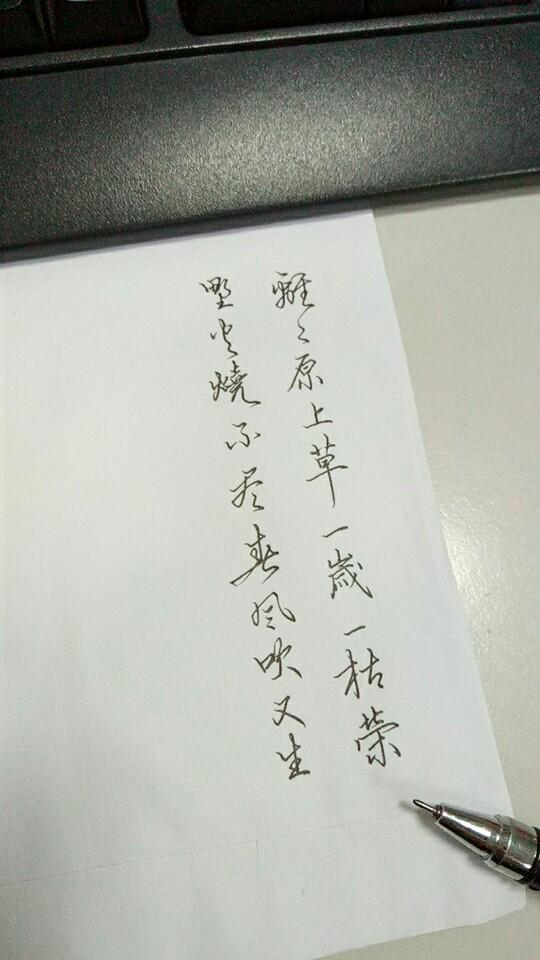 離々原上草一歲一枯榮
野火燒不尽春风吹又生